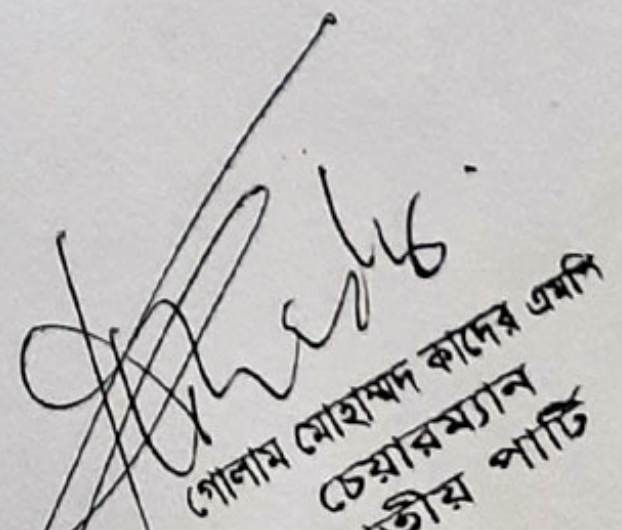 গোলাম মোহাম্মদ কাদের এমপি
চেয়ারম্যান
পার্টি